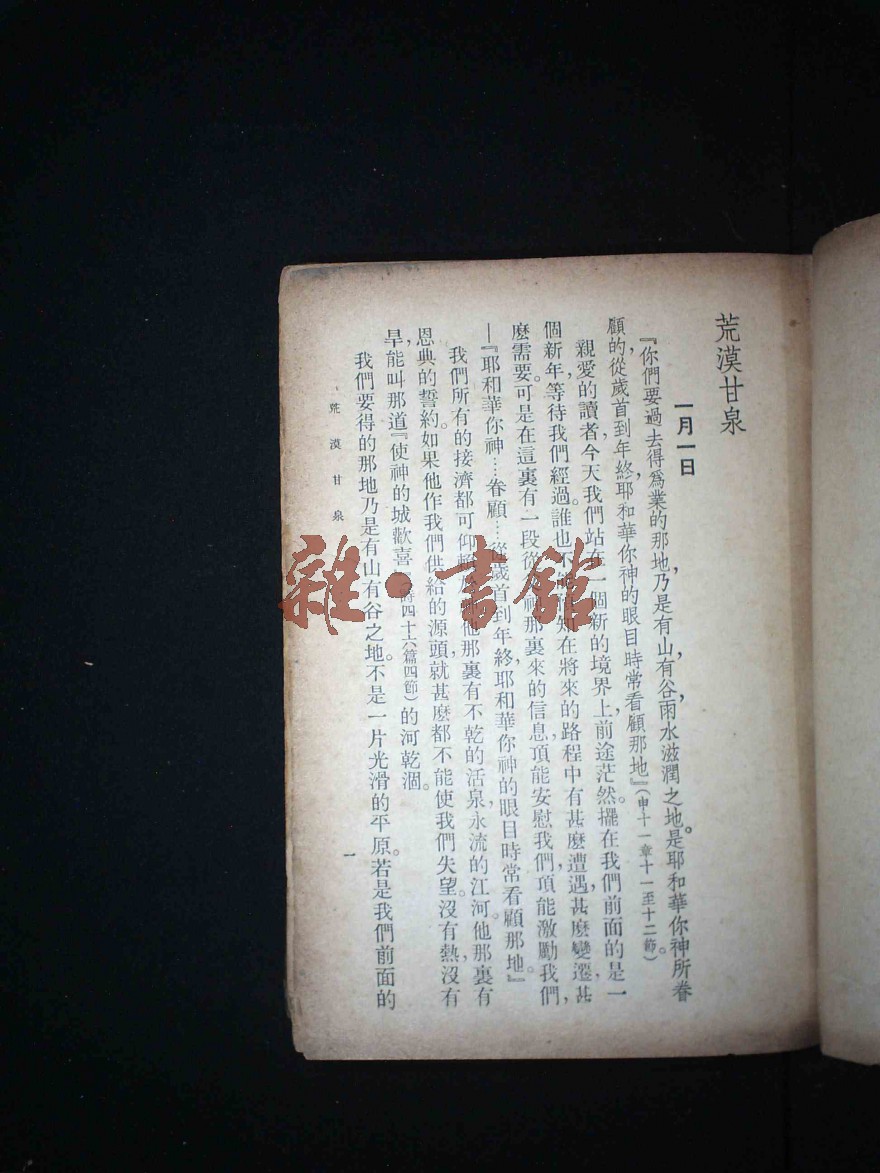 荒漠甘泉
一月一日
『你們要過去得爲業的那地，乃是有山有谷，雨水滋潤之地。是耶和華你神所眷
顧的，從歲首到年終，耶和華你神的眼目時常看顧那地。』（申十一章十一至十二節）
親愛的讀者，今天我們站在一個新的境界上，前途茫然。擺在我們前面的是一
個新年，等待我們經過。誰也不知在將來的路程中有甚麼遭遇，甚麼變遷，甚
麼需要。可是在這裏有一段從神那裏來的信息，頂能安慰我們，頂能激勵我們，
—『耶和華你神……眷顧……從歲首到年終，耶和華你神的眼目時常看顧那地。』
我們所有的接濟都可仰他那裏有不乾的活泉，永流的江河。他那裏有
恩典的誓約。如果他作我們供給的源頭，就甚麼都不能使我們失望。沒有熱，沒有
旱，能叫那道『使神的城歡喜』（詩四十六篇四節）的河乾涸。
我們要得的那地乃是有山有谷之地。不是一片光滑的平原。若是我們前面的
荒漠甘泉
一
雜·書館